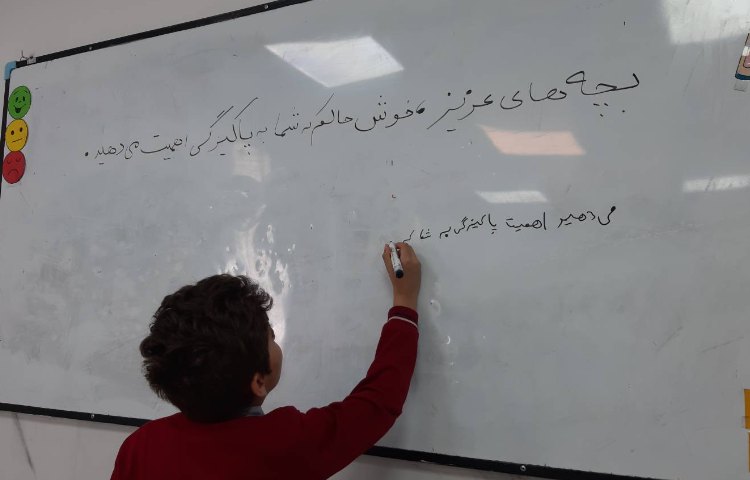 بچه های عزیز، خوش حالم که شما به پاکیزگی اهمیت می دهید.
می دهید اهمیت پاکیزگی به شما که